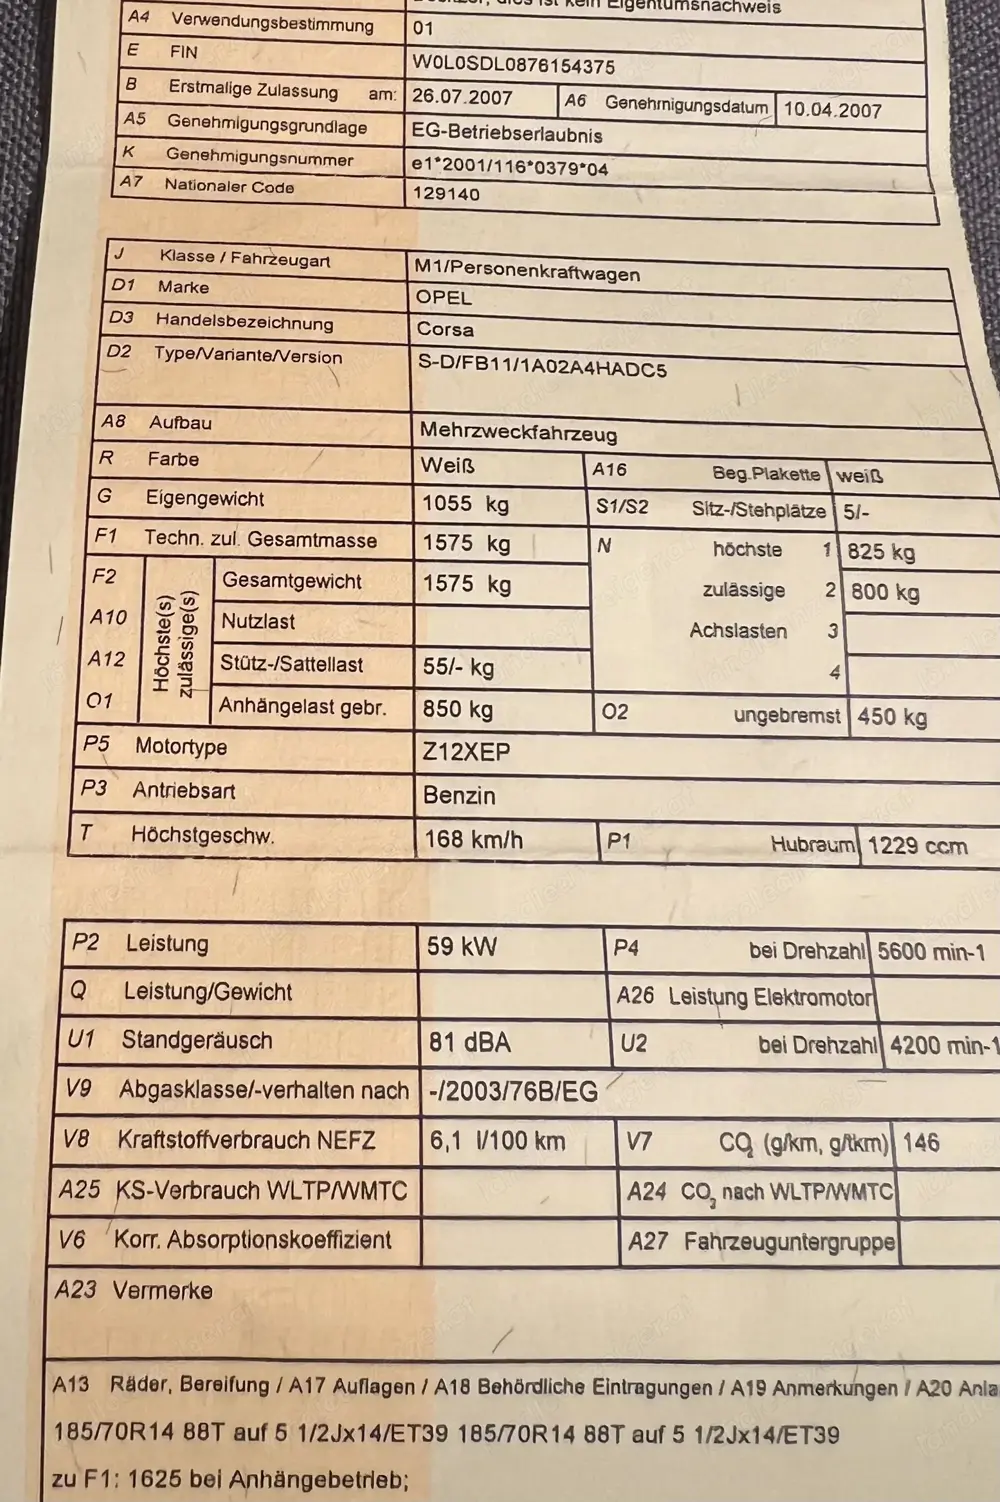 dies ist kein Eigentumsnachweis
A4 Verwendungsbestimmung 01
E FIN W0L0SDL0876154375
B Erstmalige Zulassung am: 26.07.2007 A6 Genehmigungsdatum 10.04.2007
A5 Genehmigungsgrundlage EG-Betriebserlaubnis
K Genehmigungsnummer e1*2001/116*0379*04
A7 Nationaler Code 129140
J Klasse / Fahrzeugart M1/Personenkraftwagen
D1 Marke OPEL
D3 Handelsbezeichnung Corsa
D2 Type/Variante/Version S-D/FB11/1A02A4HADC5
A8 Aufbau Mehrzweckfahrzeug
R Farbe Weiß A16 Beg.Plakette weiß
G Eigengewicht 1055 kg S1/S2 Sitz-/Stehplätze 5/-
F1 Techn. zul. Gesamtmasse 1575 kg N höchste 1 825 kg
F2 Höchste(s) zulässige(s) Gesamtgewicht 1575 kg zulässige 2 800 kg
A10 Nutzlast Achslasten 3
A12 Stütz-/Sattellast 55/- kg 4
O1 Anhängelast gebr. 850 kg O2 ungebremst 450 kg
P5 Motortype Z12XEP
P3 Antriebsart Benzin
T Höchstgeschw. 168 km/h P1 Hubraum 1229 ccm
P2 Leistung 59 kW P4 bei Drehzahl 5600 min-1
Q Leistung/Gewicht A26 Leistung Elektromotor
U1 Standgeräusch 81 dBA U2 bei Drehzahl 4200 min-1
V9 Abgasklasse/-verhalten nach -/2003/76B/EG
V8 Kraftstoffverbrauch NEFZ 6,1 l/100 km V7 CO₂ (g/km, g/tkm) 146
A25 KS-Verbrauch WLTP/WMTC A24 CO₂ nach WLTP/WMTC
V6 Korr. Absorptionskoeffizient A27 Fahrzeuguntergruppe
A23 Vermerke
A13 Räder, Bereifung / A17 Auflagen / A18 Behördliche Eintragungen / A19 Anmerkungen / A20 Anla
185/70R14 88T auf 5 1/2Jx14/ET39 185/70R14 88T auf 5 1/2Jx14/ET39
zu F1: 1625 bei Anhängebetrieb;